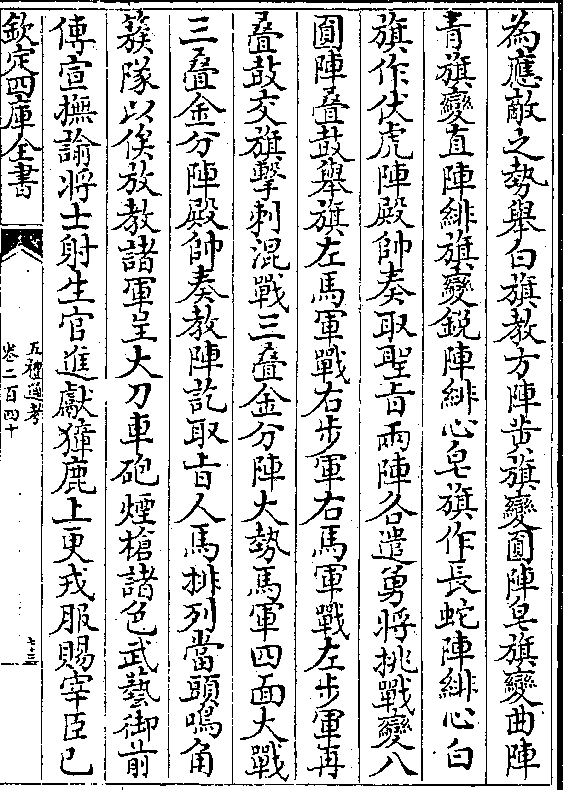 為應敵之勢舉白旗教方陣黃旗變圓陣皂旗變曲陣
青旗變直陣緋旗變銳陣緋心皂旗作長蛇陣緋心白
旗作伏虎陣殿帥奏取聖旨兩陣各遣勇將挑戰變八
圓陣疊鼓舉旗左馬軍戰右步軍右馬軍戰左步軍再
疊鼓交旗擊刺混戰三疊金分陣大勢馬軍四面大戰
三疊金分陣殿帥奏教陣訖取旨人馬排列當頭鳴角
簇隊以俟放教諸軍呈大刀車砲煙槍諸色武藝御前
傳宣撫諭將士射生官進獻獐鹿上更戎服賜宰臣已
欽定四庫全書
五禮通考
卷二百四十
七十三